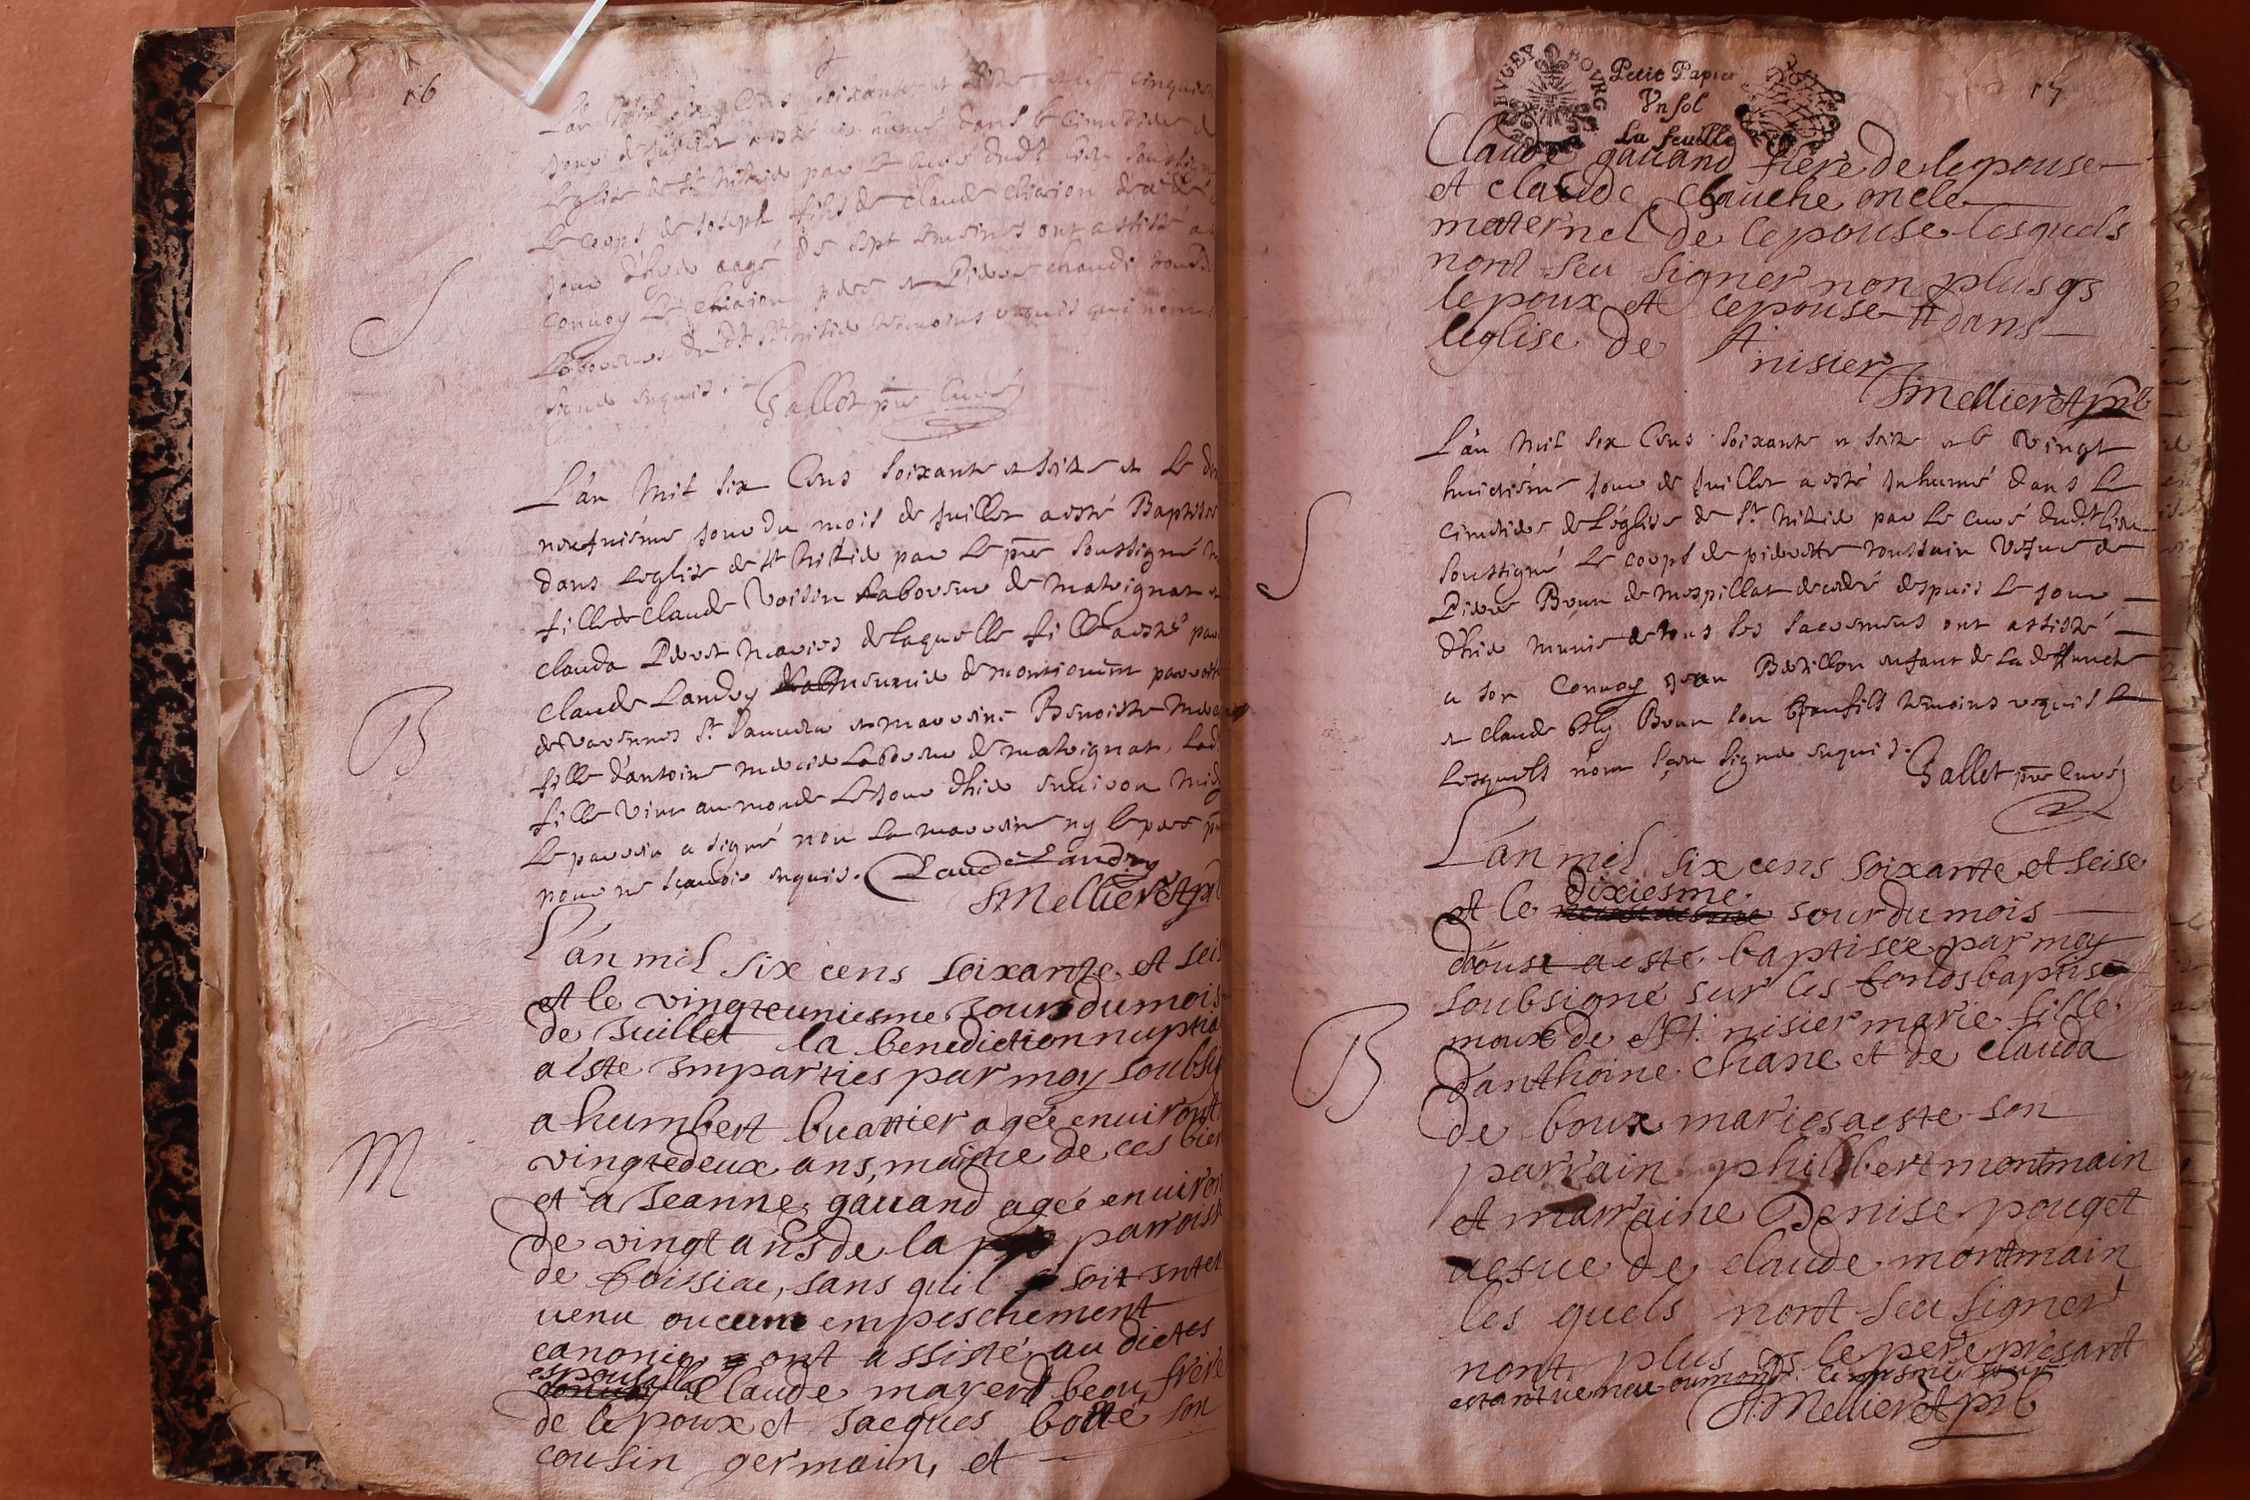 16
L'an Mil six Cens soixante et seize et le cinquies
jour de juillet a esté inhumé dans le cimetiere d
L'eglise de st Nisié par le curé dudt lieu soussigné
Le corps de Joseph fils de Claude chiaion decedé
jour d'hier aagé de sept semaines ont assisté a
convoy Led. chiaion pere et Pierre
Laboureur dudt st Nisié tesmoins requis qui n'ont
signé enquis.
Gallet pre Curé
S
L'an Mil six Cens soixante et seize et Le di
neufuiéme jour du mois de juillet a esté Baptisée
dans L'eglise de st Nisié par Le pre soussigné
fille de Claude Voisin Laboureur de malvignat et
clauda Pevet mariés de laquelle fille a esté par
claude Landry de montionent parroisse
de varennes st Sauveur et marreine Benoiste Mercier
fille d'antoine mercier Laboureur de malvignat, Lad.
fille vint au monde Le jour d'hier environ midy
Le parrein a signé non La marreine ny le pere p
pour ne sçavoir enquis. Claude Landry
J Mellieret pb
B
L'an mil six cens soixante et seis
et le vingteuniesme jour du mois
de Juillet la benediction nuptia
a este imparties par moy soubsig
a humbert buattier agée enuiront
vingtedeux ans, maistre de ces bien
et a Jeanne gauand agée enuiron
de vingt ans de la parroiss
de foissiac, sans quil soit inter
uenu oucune empeschement
canonic ont assisté au dictes
espousalles Claude mayerd beau frere
de lepoux et Jacques botte son
cousin germain, et
M
BVGEY BOVRG
Petit Papier
Vn sol
La feuille
17
Claude gauand frere de lepouse
et claude clauche oncle
maternel de lepouse lesquels
nont seu signer non plus qs
lepoux et lepouse dans
leglise de st nisier
J Mellieret pb
L'an Mil six Cens soixante et seize et le vingt
huictiéme jour de juillet a esté inhumé dans Le
cimetiere de L'eglise de st Nisié par Le curé dudt lieu
soussigné Le corps de pierrette toussain vefue de
Pierre Brun de Mespillat decedé despuis Le jour
d'hier munie de tous ses sacremens ont assisté
a son Convoy jean Berillon enfant de la deffuncte
et claude Brun son beaufils temoins requis
Lesquels n'ont sceu signer enquis.
Gallet pre Curé
S
L'an mil six cens soixante et seise
et le dixiesme jour du mois
d'oust a esté baptisée par moy
soubsigné sur les fonds baptis
moux de st. nisier marie fille
d'anthoine chane et de clauda
de boux maries a este son
parrain philibert montmain
et marraine Denise pouget
uesue de claude montmain
les quels nont seu signer
nont plus qs le pere presant
estant uenue oumonde le mesme jour
J. Mellieret pb
B